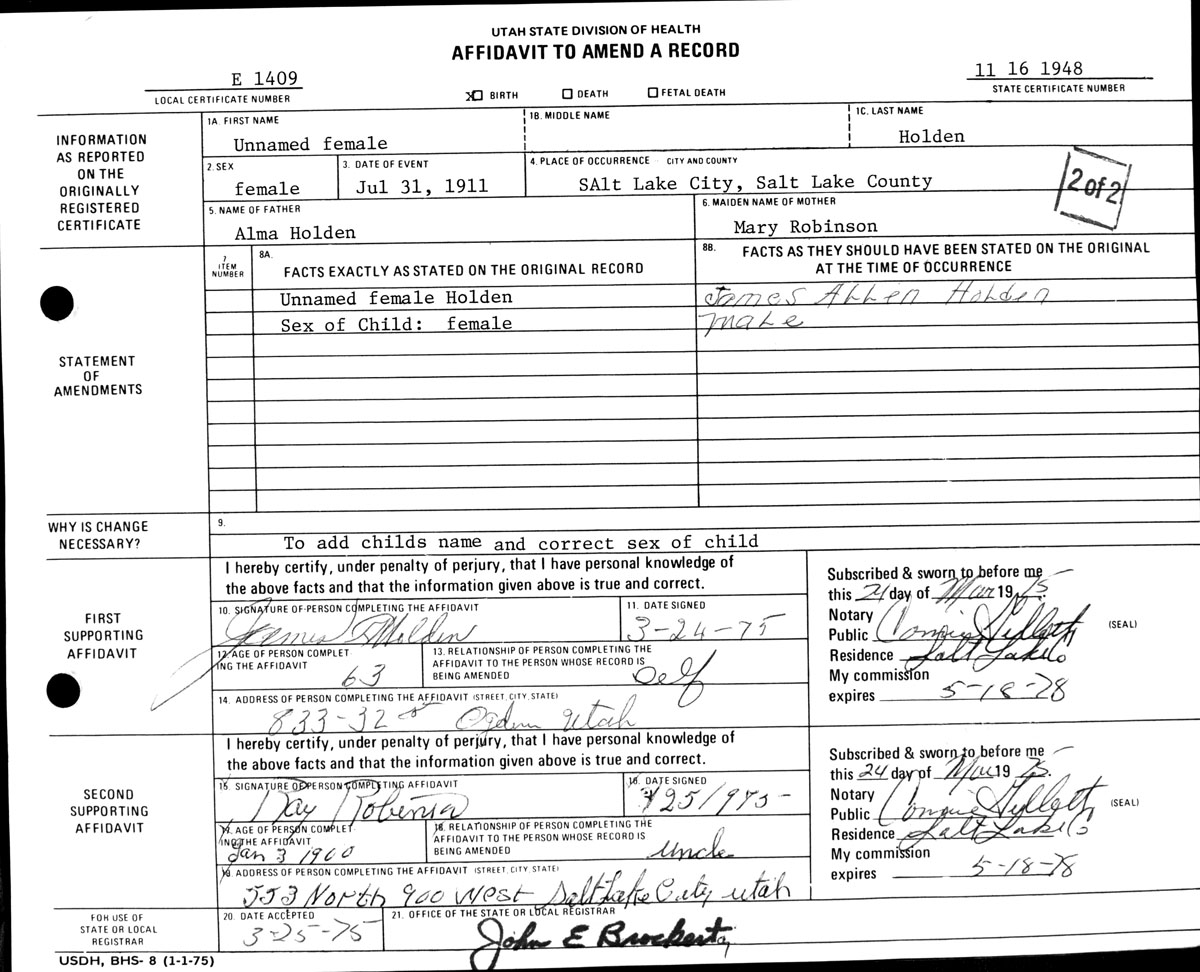 UTAH STATE DIVISION OF HEALTH
AFFIDAVIT TO AMEND A RECORD
E 1409
LOCAL CERTIFICATE NUMBER
X BIRTH DEATH FETAL DEATH
11 16 1948
STATE CERTIFICATE NUMBER
INFORMATION
AS REPORTED
ON THE
ORIGINALLY
REGISTERED
CERTIFICATE
1A. FIRST NAME
Unnamed female
1B. MIDDLE NAME
1C. LAST NAME
Holden
2. SEX
female
3. DATE OF EVENT
Jul 31, 1911
4. PLACE OF OCCURRENCE - CITY AND COUNTY
SAlt Lake City, Salt Lake County
2 of 2
5. NAME OF FATHER
Alma Holden
6. MAIDEN NAME OF MOTHER
Mary Robinson
STATEMENT
OF
AMENDMENTS
7
ITEM
NUMBER
8A.
FACTS EXACTLY AS STATED ON THE ORIGINAL RECORD
8B. FACTS AS THEY SHOULD HAVE BEEN STATED ON THE ORIGINAL
AT THE TIME OF OCCURRENCE
Unnamed female Holden
James Allen Holden
Sex of Child: female
male
WHY IS CHANGE
NECESSARY?
9.
To add childs name and correct sex of child
FIRST
SUPPORTING
AFFIDAVIT
I hereby certify, under penalty of perjury, that I have personal knowledge of
the above facts and that the information given above is true and correct.
10. SIGNATURE OF PERSON COMPLETING THE AFFIDAVIT
James Holden
11. DATE SIGNED
3-24-75
12. AGE OF PERSON COMPLET
ING THE AFFIDAVIT
63
13. RELATIONSHIP OF PERSON COMPLETING THE
AFFIDAVIT TO THE PERSON WHOSE RECORD IS
BEING AMENDED
Self
14. ADDRESS OF PERSON COMPLETING THE AFFIDAVIT (STREET, CITY, STATE)
833-32 Ogden Utah
Subscribed & sworn to before me
this 24 day of Mar 19 75.
Notary
Public Connie
(SEAL)
Residence Salt Lake Co
My commission
expires 5-18-78
SECOND
SUPPORTING
AFFIDAVIT
I hereby certify, under penalty of perjury, that I have personal knowledge of
the above facts and that the information given above is true and correct.
15. SIGNATURE OF PERSON COMPLETING AFFIDAVIT
Ray Robinson
16. DATE SIGNED
25/975
17. AGE OF PERSON COMPLET
ING THE AFFIDAVIT
Jan 3 1900
18. RELATIONSHIP OF PERSON COMPLETING THE
AFFIDAVIT TO THE PERSON WHOSE RECORD IS
BEING AMENDED
uncle
19. ADDRESS OF PERSON COMPLETING THE AFFIDAVIT (STREET, CITY, STATE)
553 North 900 West Salt Lake City Utah
Subscribed & sworn to before me
this 24 day of Mar 19 75.
Notary
Public Connie
(SEAL)
Residence Salt Lake Co
My commission
expires 5-18-78
FOR USE OF
STATE OR LOCAL
REGISTRAR
20. DATE ACCEPTED
3-25-75
21. OFFICE OF THE STATE OR LOCAL REGISTRAR
John E Brockert
USDH, BHS- 8 (1-1-75)